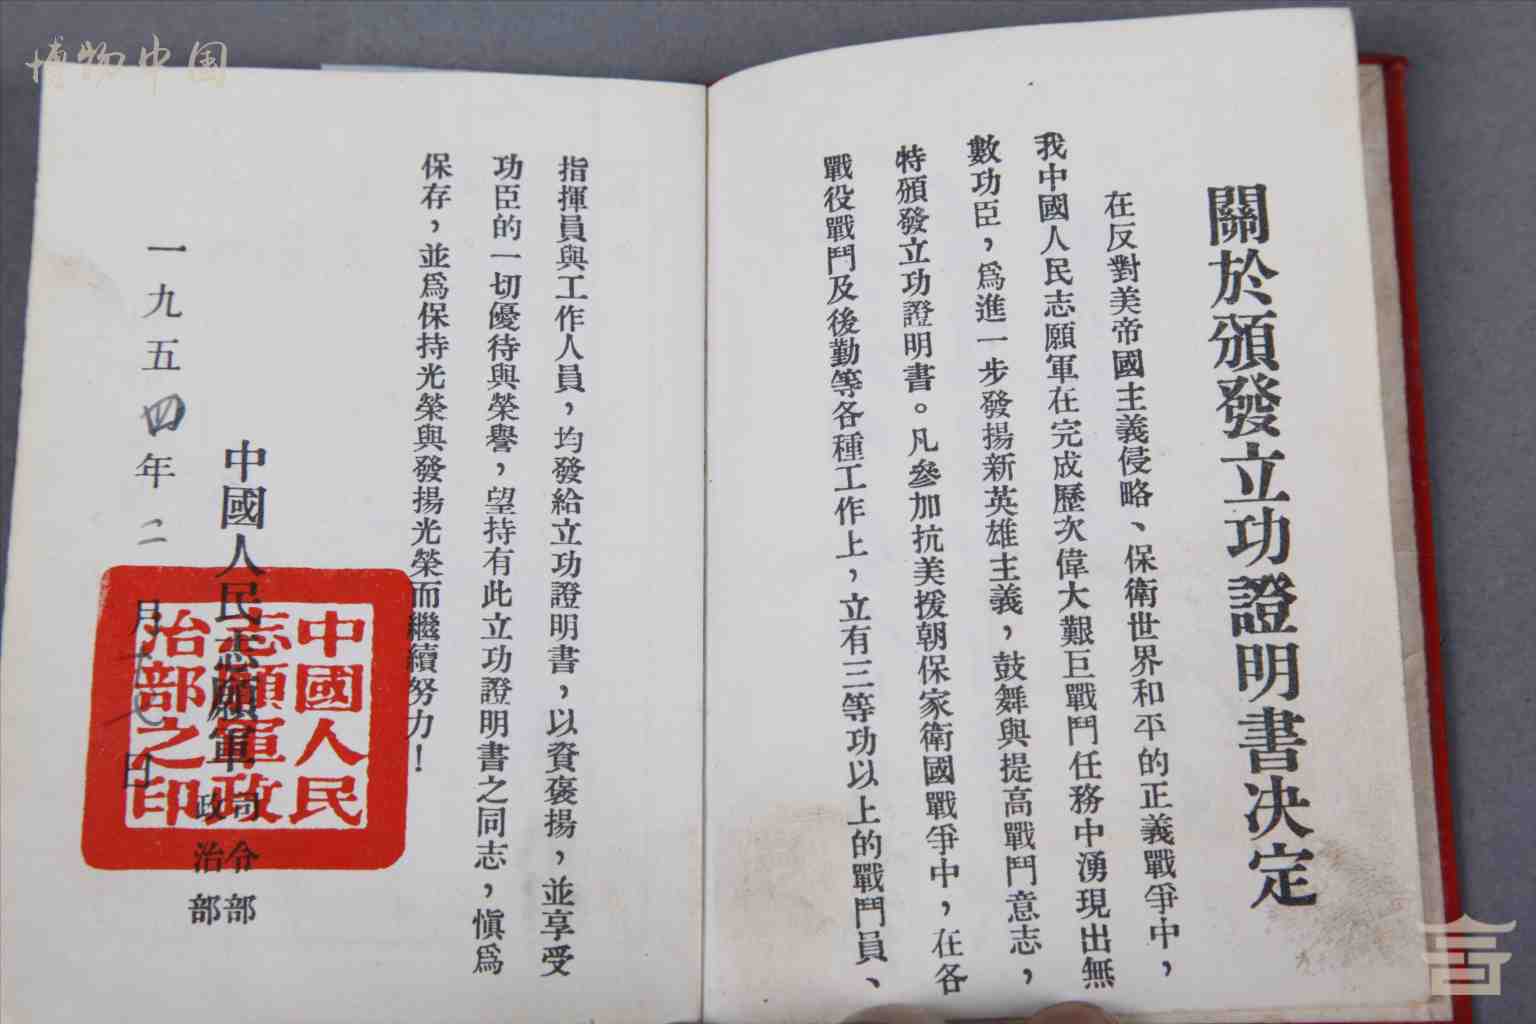 博物中国
關於頒發立功證明書决定
在反對美帝國主義侵略、保衛世界和平的正義戰爭中，
我中國人民志願軍在完成歷次偉大艱巨戰鬥任務中湧現出無
數功臣，爲進一步發揚新英雄主義，鼓舞與提高戰鬥意志，
特頒發立功證明書。凡參加抗美援朝保家衛國戰爭中，在各
戰役戰鬥及後勤等各種工作上，立有三等功以上的戰鬥員、
指揮員與工作人員，均發給立功證明書，以資褒揚，並享受
功臣的一切優待與榮譽，望持有此立功證明書之同志，愼爲
保存，並爲保持光榮與發揚光榮而繼續努力！
中國人民志願軍
司令部
政治部
一九五四年二月十日
中國人民
志願軍政
治部之印